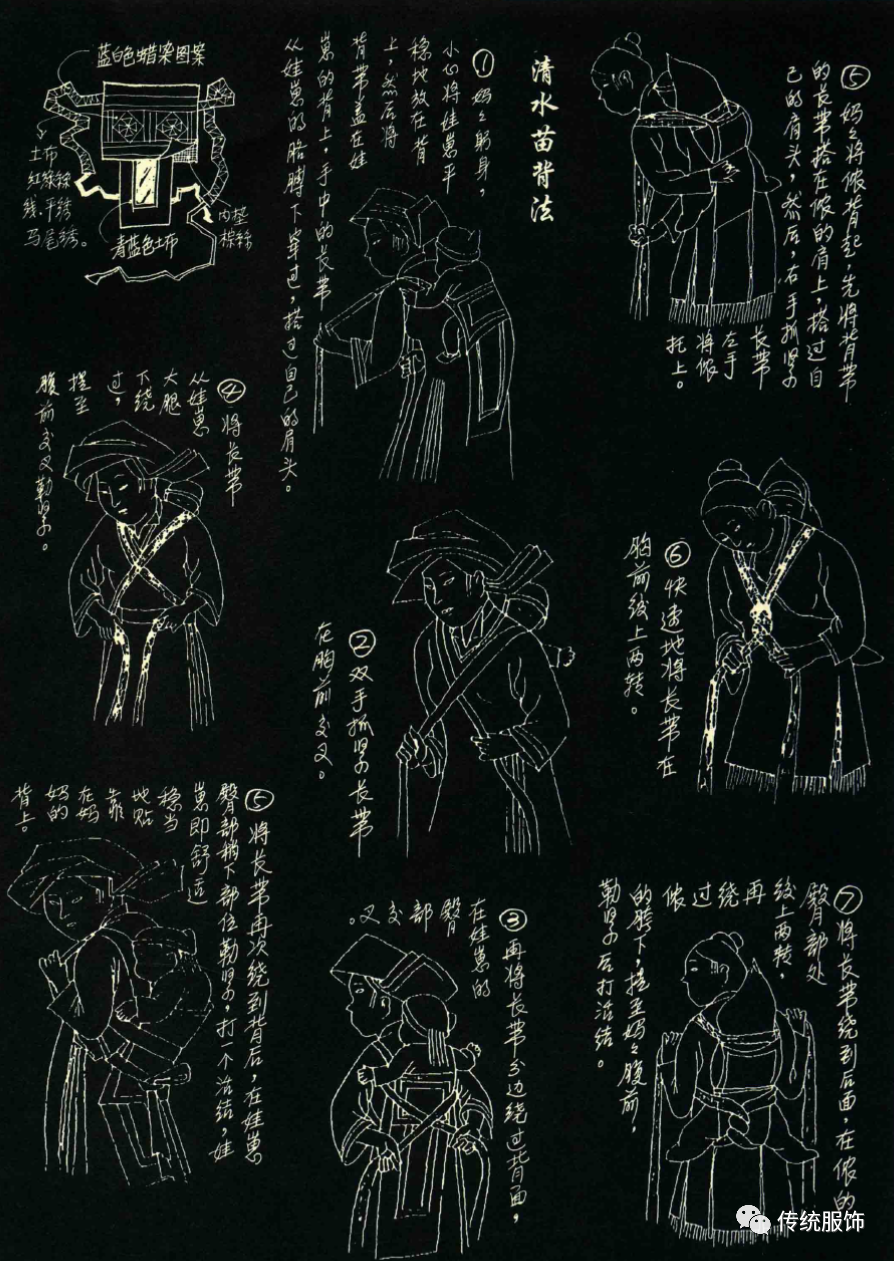 清水苗背法
①妈妈躬身，
小心将娃崽平
稳地放在背
上，然后将
背带盖在娃
崽的背上，手中的长带
从娃崽的胳膊下穿过，搭过自己的肩头。
②双手抓紧长带
在胸前交叉。
③再将长带分边绕过背面，
在娃崽的
臀部交叉。
④将长带
从娃崽
大腿
下绕
过，
提至
腹前交叉勒紧。
⑤将长带再次绕到背后，在娃崽
臀部稍下部位勒紧，打一个活结，娃
崽即舒适
稳当
地贴
靠
在妈
妈的
背上。
蓝白色蜡染图案
土布
红绿绿
线、平绣
马尾绣。
青蓝色土布
内基
棕绿
⑤妈妈将侬背起，先将背带
的长带搭在侬的肩上，搭过自
己的肩头，然后，右手抓紧
长带
左手
将侬
托上。
⑥快速地将长带在
胸前绞上两转。
⑦将长带绕到后面，在侬的
臀部处
绞上两转，
再绕过侬
的胯下，提至妈妈腹前，
勒紧后打活结。
传统服饰